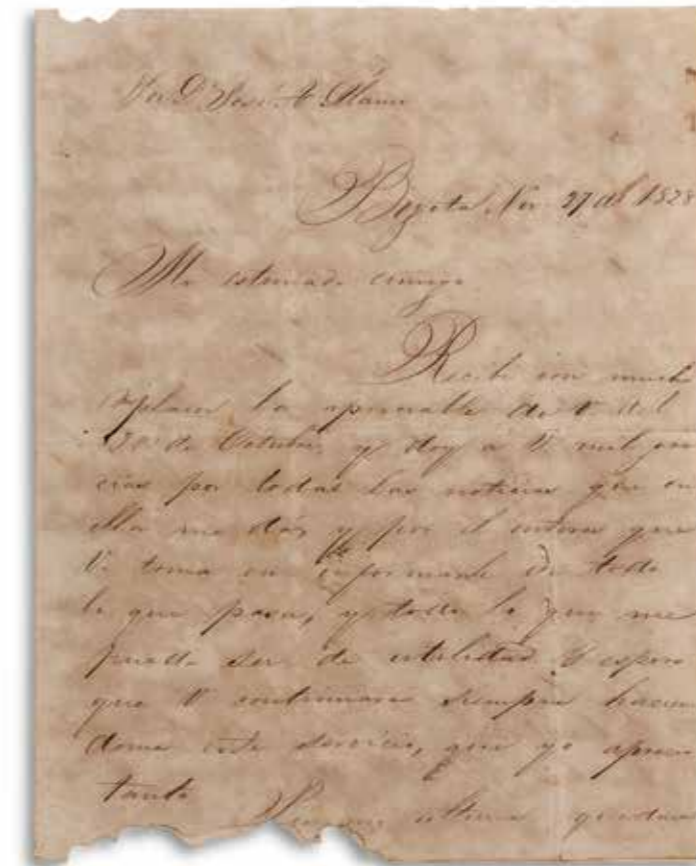 Sor Dn José A.
Bogota, Nov 27 de 1828
Mi estimado amigo
Recibi con mucho
placer la apreciable de V. del
30 de Octubre, y doy a V. mil gra
cias por todas las noticias que en
ella me da, y por el interes que
V. toma en informarme de todo
lo que pasa, y todo lo que me
pueda ser de utilidad. Y espero
que V. continuara siempre hacien
dome este servicio, que yo aprecio
tanto